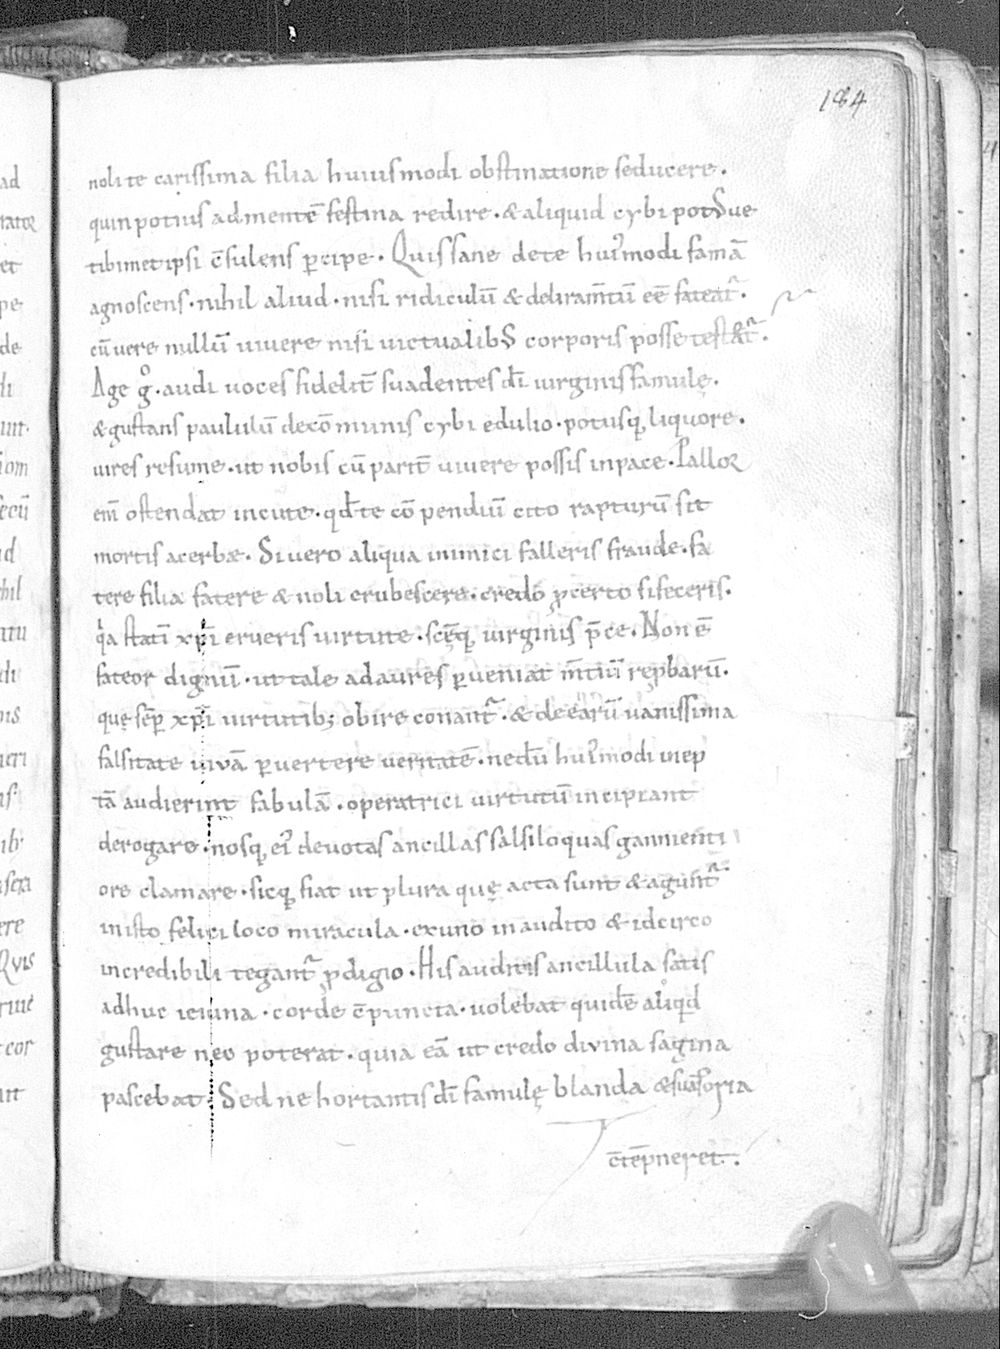 184
nolite carissima filia huiusmodi obstinatione seducere.
quin potius ad mentē festina redire. & aliquid cybi pot᷒ue
tibimet ipsi c̄sulens p̄cipe. Quis sane de te hui᷒modi famā
agnoscens. nihil aliud. nisi ridiculū & deliram̄tū eē fateat᷑.
cū uere nullū uiuere nisi uictualib᷒ corporis posse testet᷑.
Age gͦ. audi uoces fidelit̄ suadentes dī uirginis famulę.
& gustans paululū de cōmunis cybi edulio. potusq; liquore.
uires resume. ut nobis cū parit̄ uiuere possis in pace. Pallor
em̄ ostendat in cute. qd̄ te cōpendiū cito rapturū sit
mortis acerbæ. Si uero aliqua inimici falleris fraude. fa
tere filia fatere & noli erubescere. credo ꝓcerto si feceris.
qͥa statī xp̄i erueris uirtute. scęq; uirginis p̄ce. Non ē
fateor dignū. ut tale ad aures ꝑueniat m̄tiū rep̱barū.
quę sēp xp̄i uirtutib; obire conant᷑. & de earū uanissima
falsitate uiuā ꝑuertere ueritatē. nedū hui᷒modi inep
tā audierint fabulā. operatrici uirtutū incipiant
derogare. nosq; ei᷒ deuotas ancillas falsiloquas gannienti
ore clamare. sicq; fiat ut plura quę acta sunt & agunt᷑
in isto felici loco miracula. ex uno inaudito & idcirco
incredibili tegant᷑ ꝓdigio. His auditis ancillula satis
adhuc ieiuna. corde c̄puncta. uolebat quidē aliqͥd
gustare nec poterat. quia eā ut credo diuina sagina
pascebat. Sed ne hortantis dī famulę blanda & suasoria
c̄tēpneret.